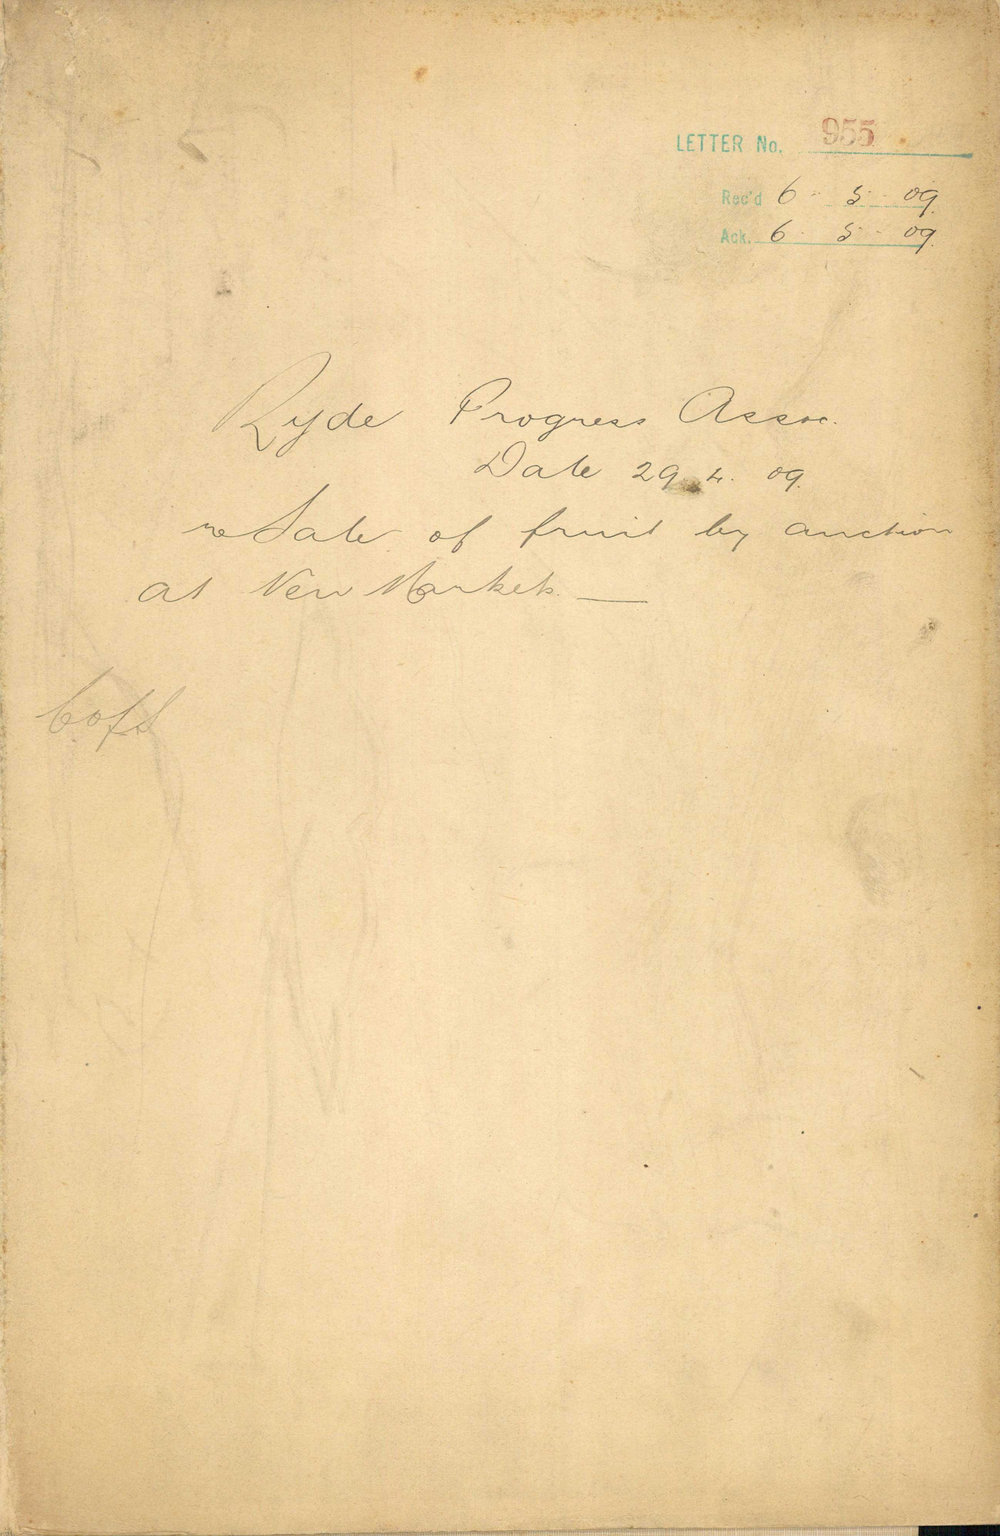 LETTER No. 955
Rec'd 6 - 5 - 09.
Ack. 6 - 5 - 09.
Ryde Progress Assoc.
Date 29. 4. 09.
re Sale of fruit by auction
at New Markets. —
C of S